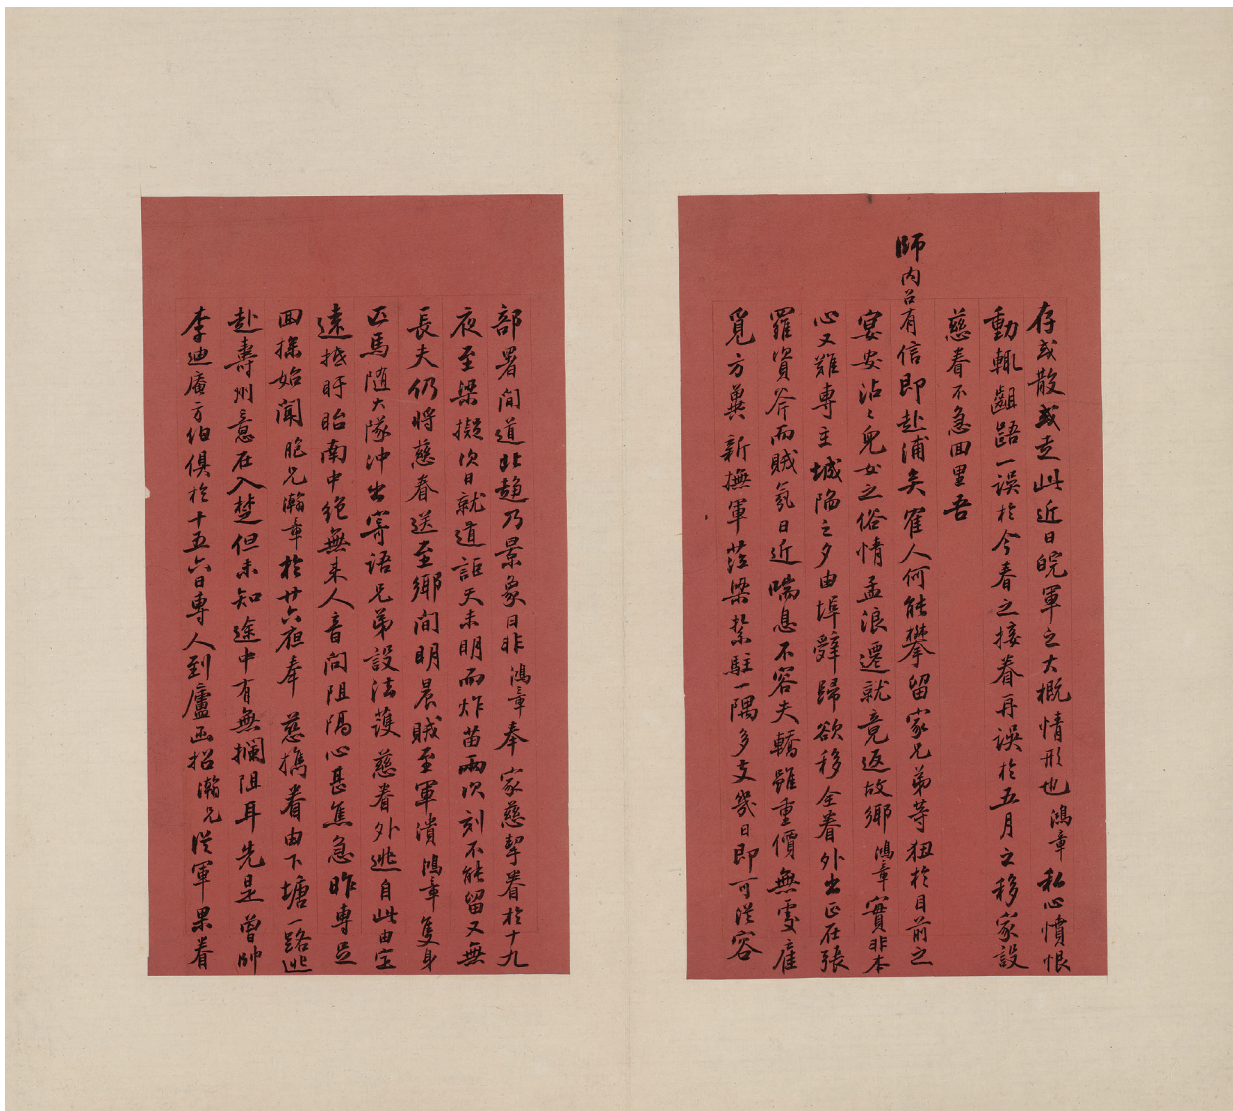 存或散或走此近日皖軍之大概情形也鴻章私心憤恨
動輒齟齬一誤於今春之接眷再誤於五月之移家設
慈眷不急回里吾
師內召有信即赴浦矣寉人何能攀留家兄弟等狃於目前之
宴安沾沾兒女之俗情孟浪遷就竟返故鄉鴻章實非本
心又難專主城陷之夕由埠辭歸欲移全眷外出正在張
羅資斧而賊氛日近喘息不容夫轎雖重價無處雇
覓方冀新撫軍蒞梁紮駐一隅多支幾日即可從容
部署間道北趨乃景象日非鴻章奉家慈挈眷於十九
夜至梁擬次日就道詎天未明而炸苗兩次刻不能留又無
長夫仍將慈眷送至鄉間明晨賊至軍潰鴻章隻身
匹馬隨大隊沖出寄語兄弟設法護慈眷外逃自此由定
遠抵盱眙南中絕無來人音問阻隔心甚焦急昨專足
回探始聞胞兄瀚章於廿六夜奉慈攜眷由下塘一路逃
赴壽州意在入楚但未知途中有無攔阻耳先是曾帥
李迪庵方伯俱於十五六日專人到廬函招瀚兄從軍果眷